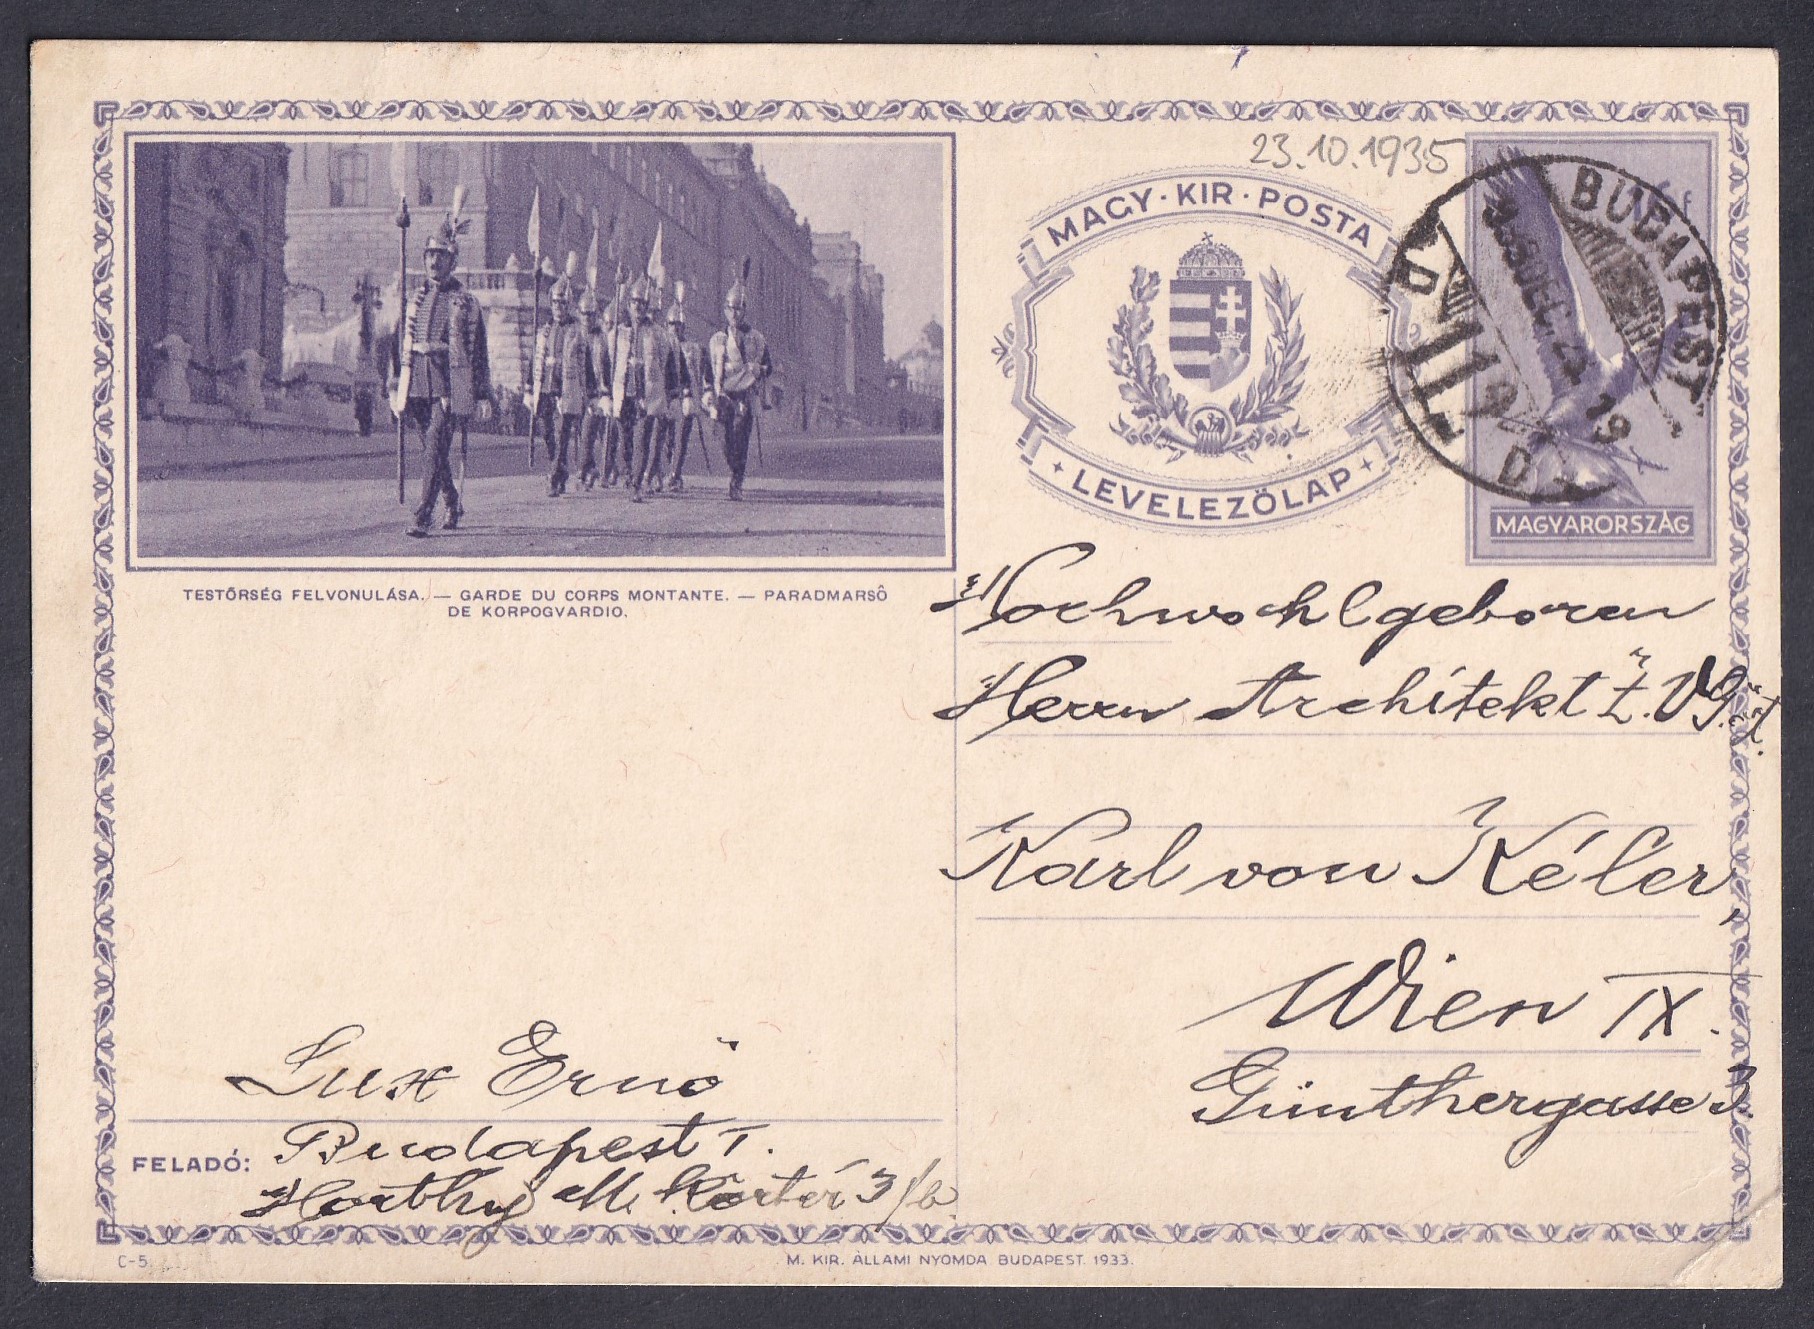 23.10.1935
MAGY · KIR · POSTA
LEVELEZŐLAP
BUDAPEST
MAGYARORSZÁG
TESTŐRSÉG FELVONULÁSA. — GARDE DU CORPS MONTANTE. — PARADMARSÔ
DE KORPOGVARDIO.
Hochwohlgeboren
Herrn Architekt Z.V.
Karl von Kéler,
Wien IX.
Günthergasse 3.
Lux Ernő
FELADÓ: Budapest I.
Horthy M. körtér 3/b.
C-5.
M. KIR. ÁLLAMI NYOMDA BUDAPEST. 1933.